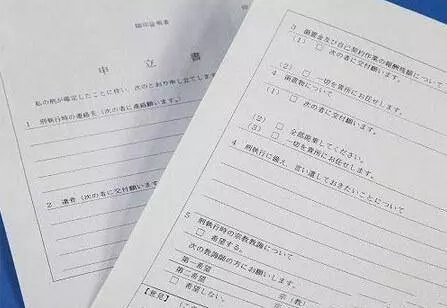 申 立 書
私の刑が確定したことに伴い、次のとおり申し立てします
1 刑執行時の連絡先(次の者に連絡願います。)
2 遺骨(次の者に交付願います
3 領置金及び自己契約作業の報酬残額について
(1) □ 次の者に交付願います。
(2) □ 一切を貴所にお任せします。
4 領置物について
(1) □ 次の者に交付願います。
(2) □ 全部廃棄してください。
(3) □ 一切を貴所にお任せします。
4 刑執行に備え 言い遺しておきたいことについて
5 刑執行時の宗教教誨について
□ 希望する。
次の教誨師の方にお願いします。
第一希望
第二希望
□ 希望しない。
宗(教)
【意見】